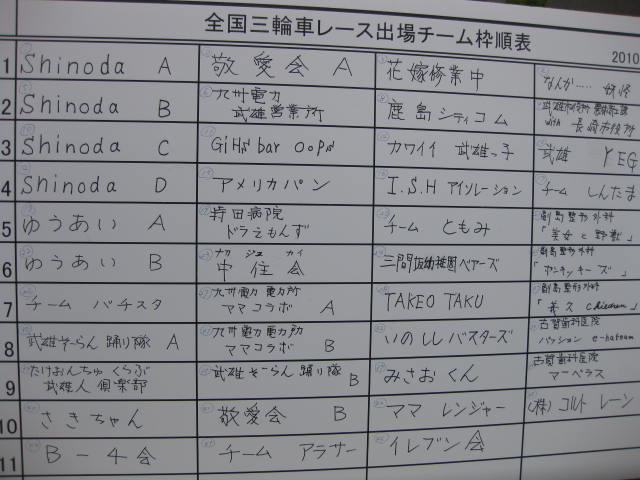 全国三輪車レース出場チーム枠順表
2010
1 Shinoda A 敬愛会 A 花嫁修業中 なんか…… 妖怪
2 Shinoda B 九州電力 武雄営業所 鹿島シティコム 武雄市役所 with 長崎市役所
3 Shinoda C GiHs' bar oops カワイイ 武雄っ子 武雄 YEG
4 Shinoda D アメリカパン I.S.H アイソレーション チーム しんたま
5 ゆうあい A 持田病院 ドラえもんず チーム ともみ 副島整形外科 「美女と野獣」
6 ゆうあい B ナカ ジュウ カイ 中住会 三間坂幼稚園ベアーズ 副島整形外科 「ヤンキッキーズ」
7 チーム バチスタ 九州電力 電力所 ママコラボ A TAKEO TAKU 副島整形外科 children」
8 武雄そーらん 踊り隊 A 九州電力 電力所 ママコラボ B いのししバスターズ 古賀歯科医院 パッション e-hateam
9 たけおんちゅ くらぶ 武雄人 倶楽部 武雄そーらん 踊り隊 B みさおくん 古賀歯科医院 マーベラス
10 さきちゃん 敬愛会 B ママ レンジャー (株) コルト レーン
11 B-4会 チーム アラサー イレブン会